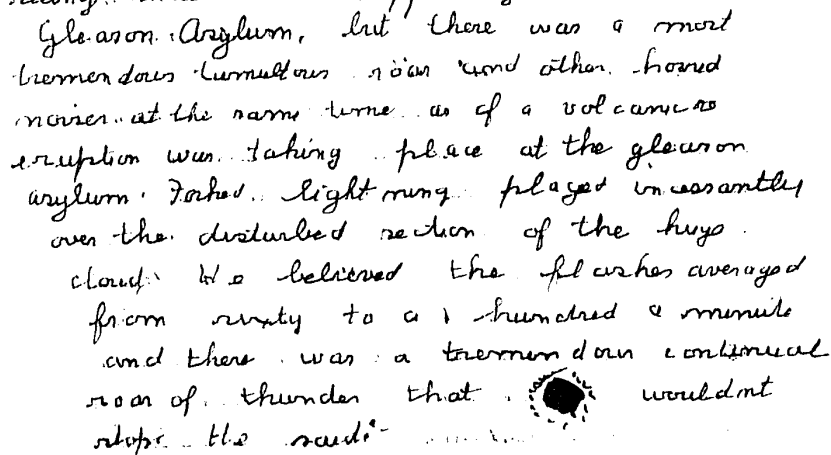 Gleason Asylum, but there was a most
tremendous tumultous roar and other horred
noises at the same time as of a volcanic
eruption was taking place at the gleason
asylum. Forked lightning played incessantly
over the disturbed section of the huge
cloud. We believed the flashes averaged
from sixty to a hundred a minute
and there was a tremendous continual
roar of thunder that wouldnt
stop. the